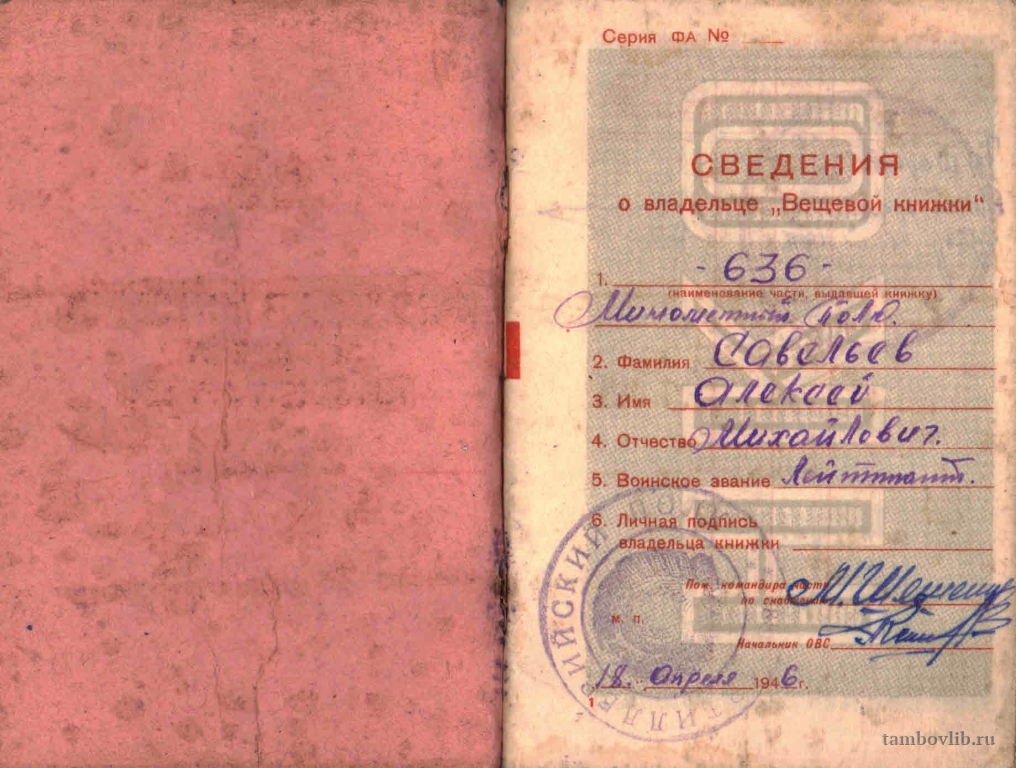 Серия ФА №
СВЕДЕНИЯ
о владельце „Вещевой книжки“
1. - 636 -
(наименование части, выдавшей книжку)
Минометный полк.
2. Фамилия Савельев
3. Имя Алексей
4. Отчество Михайлович.
5. Воинское звание Лейтенант.
6. Личная подпись
владельца книжки
Пом. командира части
по снабжению
м. п.
Начальник ОВС
18. апреля 1946 г.
1
tambovlib.ru